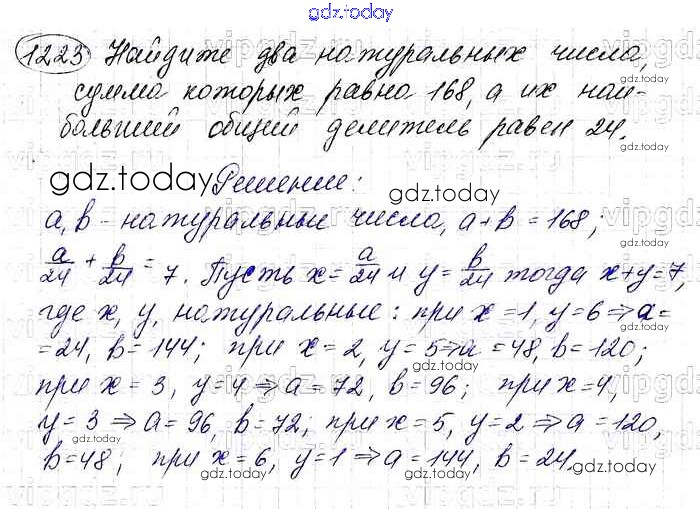 gdz.today
1223 Найдите два натуральных числа,
сумма которых равна 168, а их наи-
больший общий делитель равен 24.
gdz.today Решение: gdz.today
a, b - натуральные числа, a + b = 168;
a/24 + b/24 = 7. Пусть x = a/24 и y = b/24 тогда x+y=7,
где x, y, натуральные: при x = 1, y = 6 ⇒ a =
= 24, b = 144; при x = 2, y = 5 ⇒ a = 48, b = 120;
при x = 3, y = 4 ⇒ a = 72, b = 96; при x = 4,
y = 3 ⇒ a = 96, b = 72; при x = 5, y = 2 ⇒ a = 120,
b = 48; при x = 6, y = 1 ⇒ a = 144, b = 24.